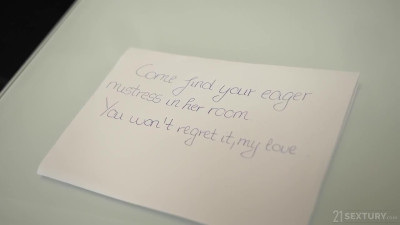 Come find your eager
mistress in her room
You won't regret it, my love.
21SEXTURY.COM